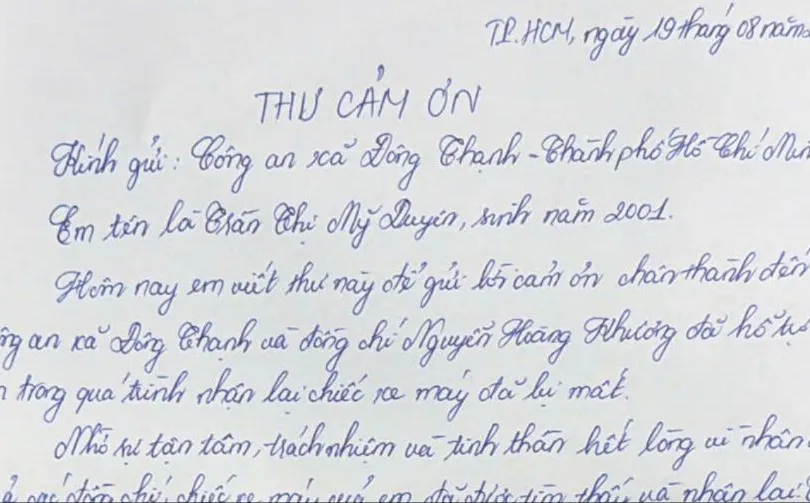 TP.HCM, ngày 19 tháng 08 năm
THƯ CẢM ƠN
Kính gửi: Công an xã Đông Thạnh - Thành phố Hồ Chí Min
Em tên là Trần Thị Mỹ Duyên, sinh năm 2001.
Hôm nay em viết thư này để gửi lời cảm ơn chân thành đến
ng an xã Đông Thạnh và đồng chí Nguyễn Hoàng Khương đã hỗ trợ
trong quá trình nhận lại chiếc xe máy đã bị mất.
Nhờ sự tận tâm, trách nhiệm và tinh thần hết lòng vì nhân
các đồng chí, chiếc xe máy của em đã được tìm thấy và nhận lại